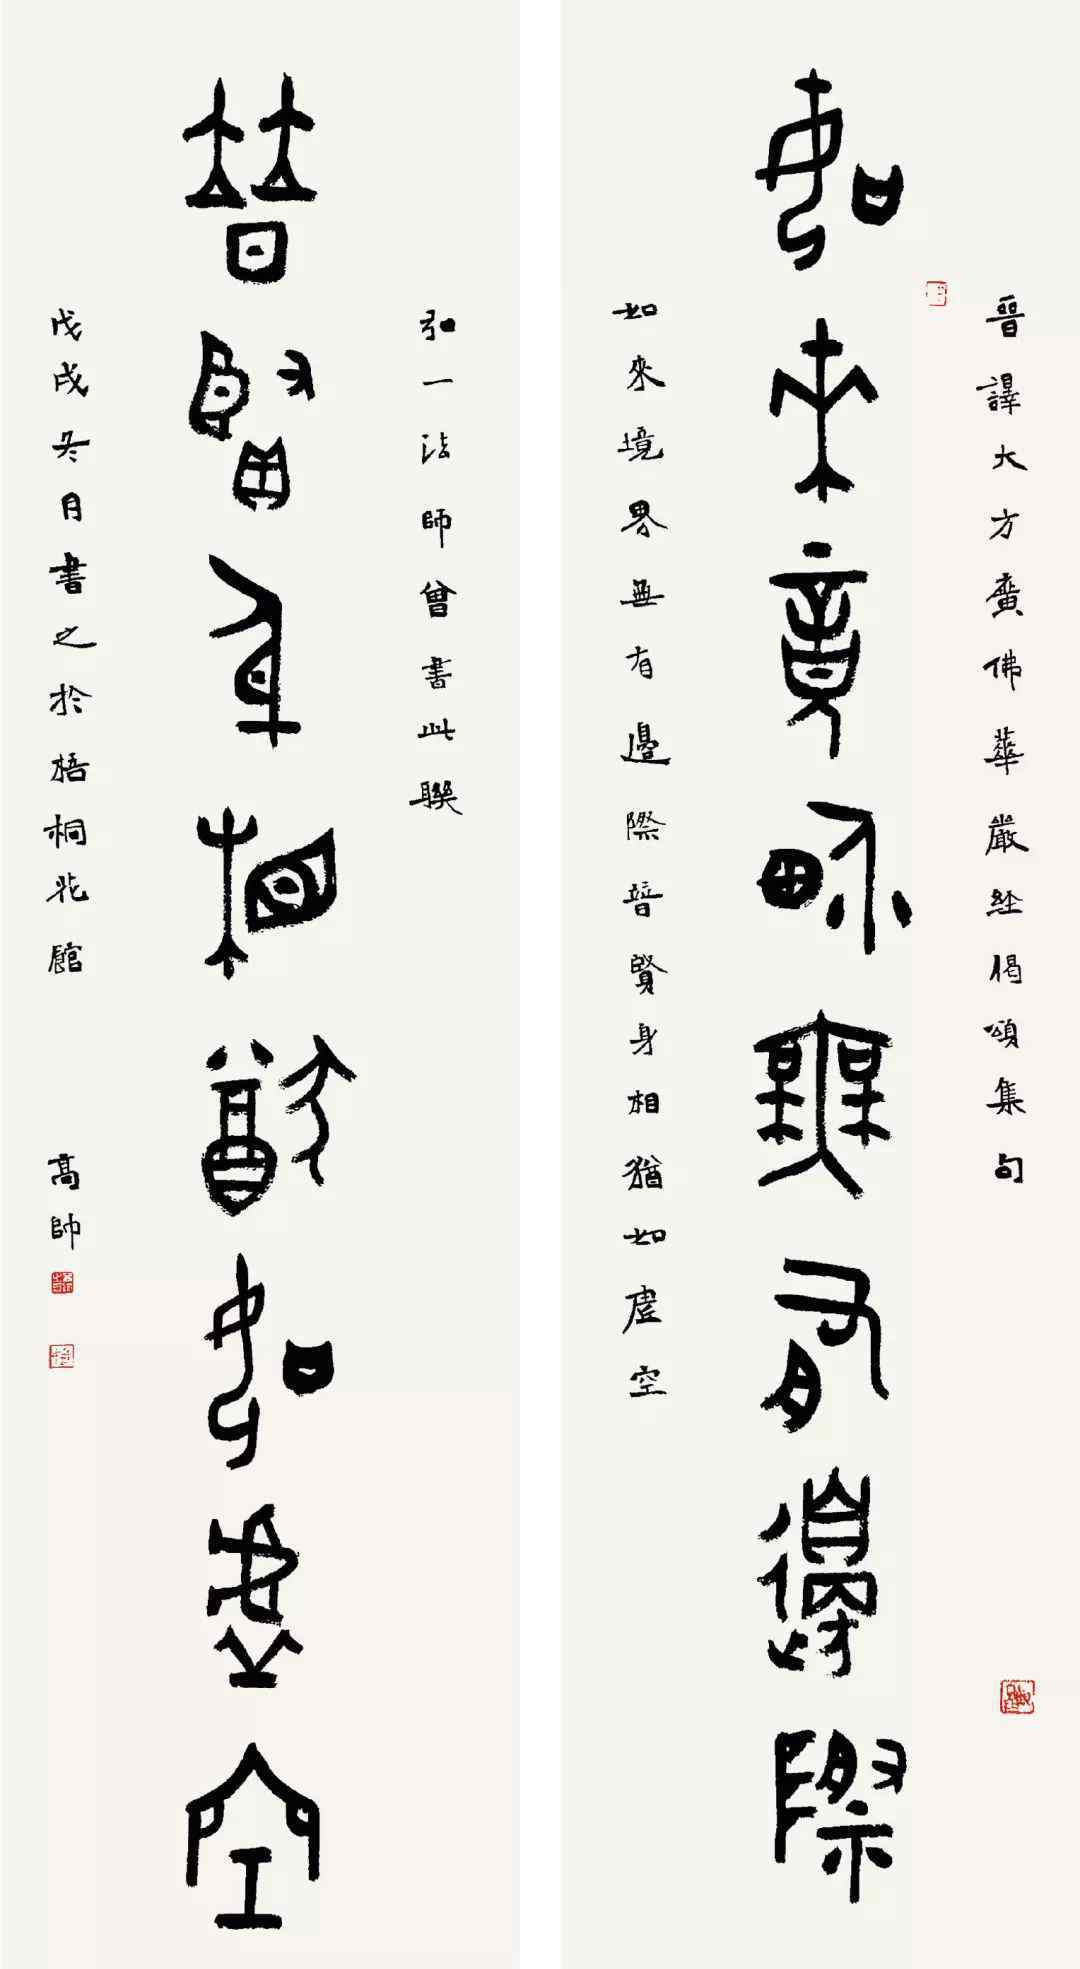 晉譯大方廣佛華嚴経偈頌集句
如來竟畍無有邊際
如來境界無有邊際普賢身相猶如虛空
弘一法師曾書此聯
普賢身相猶如虛空
戊戌冬月書之於梧桐花館
高帥